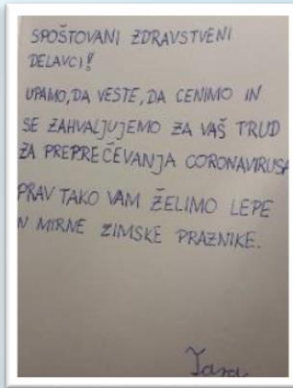 SPOŠTOVANI ZDRAVSTVENI
DELAVCI!
UPAMO, DA VESTE, DA CENIMO IN
SE ZAHVALJUJEMO ZA VAŠ TRUD
ZA PREPREČEVANJA CORONAVIRUSA
PRAV TAKO VAM ŽELIMO LEPE
N MIRNE ZIMSKE PRAZNIKE.